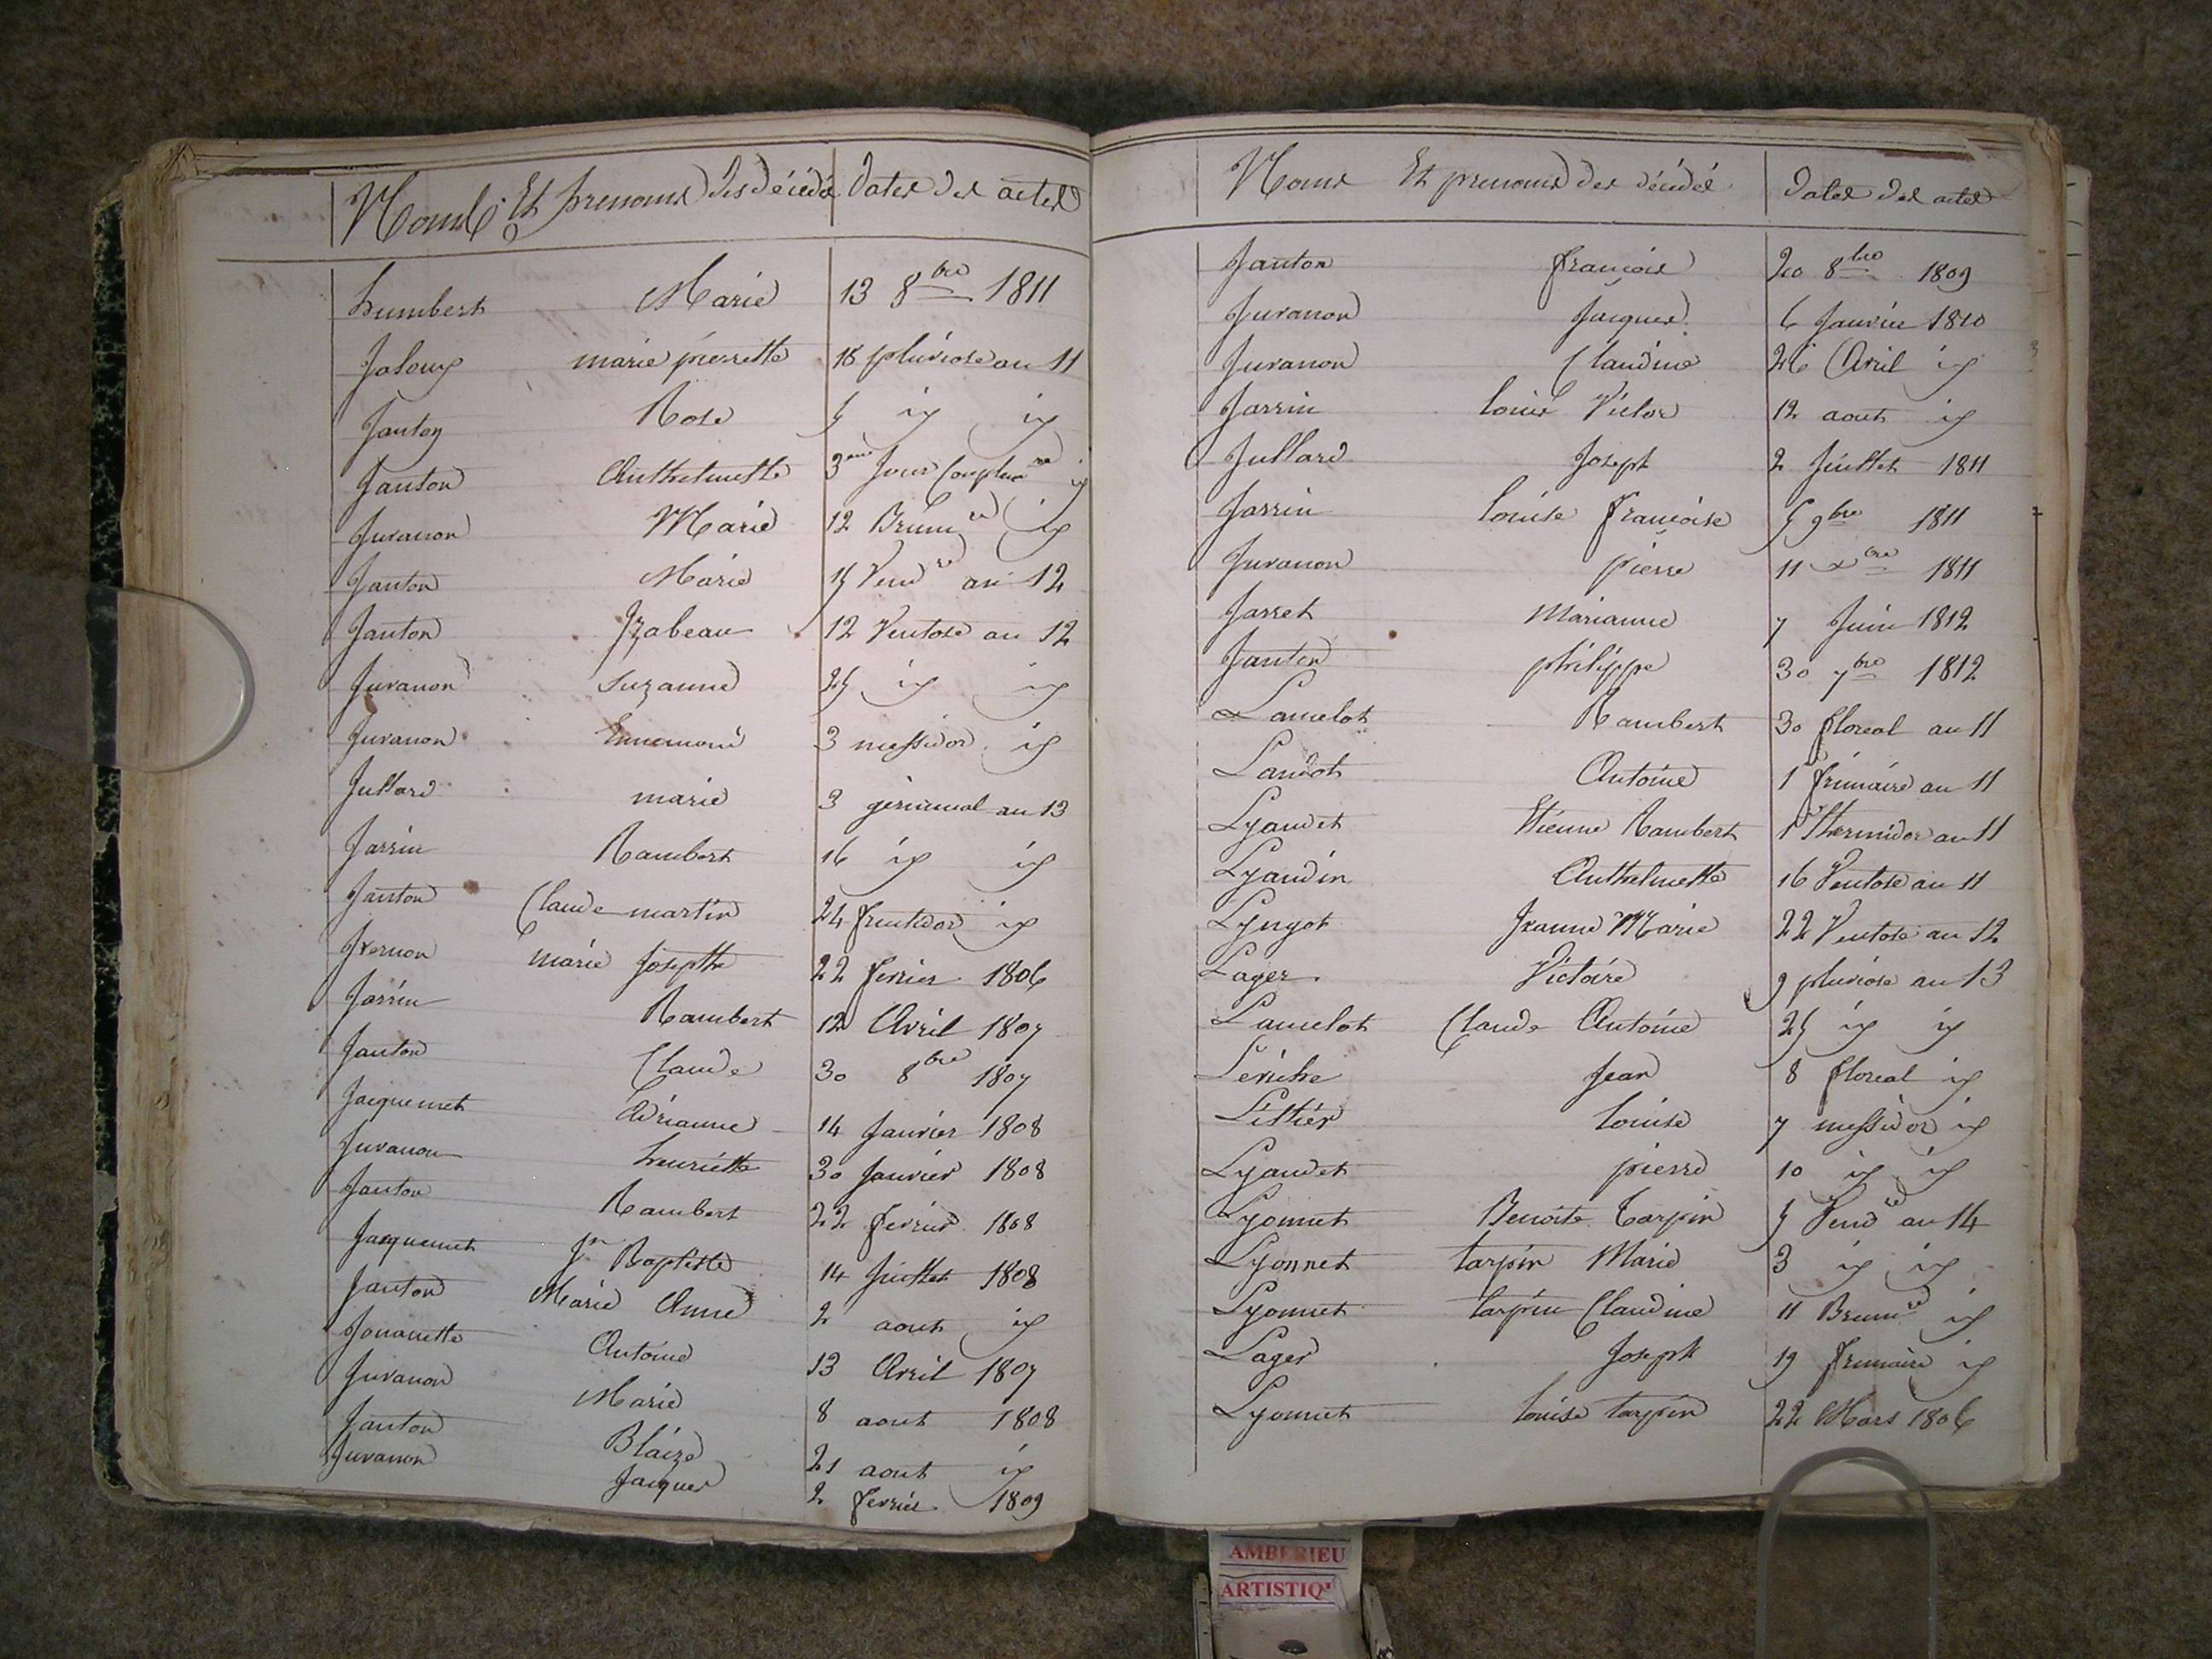 Noms Et prenoms des décédés Dates des actes
humbert Marie 13 8bre 1811
Jaloux marie pierrette 18 pluviose an 11
Janton Rose 5 id id
Janton Anthelmette 3eme Jour Complemre id
Juvanon Marie 12 Brumre id
Janton Marie 15 Vendre an 12
Janton Izabeau 12 Ventose an 12
Juvanon Suzanne 25 id id
Juvanon Ennemond 3 messidor id
Jullard marie 3 germinal an 13
Jarrin Rambert 16 id id
Janton Claude martin 24 fructidor id
Jvernon marie Josephte 22 fevrier 1806
Jarrin Rambert 12 Avril 1807
Janton Claude 30 8bre 1807
Jacquemet Adrianne 14 Janvier 1808
Juvanon henriette 30 Janvier 1808
Janton Rambert 22 fevrier 1808
Jacquemet Jn Baptiste 14 Juillet 1808
Janton Marie Anne 2 aout id
Jonanette Antoine 13 Avril 1807
Juvanon Marie 8 aout 1808
Janton Blaize 21 aout id
Juvanon Jacques 2 fevrier 1809
Noms Et prenoms des décédés Dates des actes
Janton françois 20 8bre 1809
Juvanon Jacques 6 Janvier 1810
Juvanon Claudine 26 Avril id
Jarrin Louis Victor 12 aout id
Jullard Joseph 2 Juillet 1811
Jarrin Louise françoise 5 9bre 1811
Juvanon pierre 11 xbre 1811
Jarret Marianne 7 Juin 1812
Janton philippe 30 7bre 1812
Lancelot Rambert 30 floreal an 11
Landot Antoine 1 frimaire an 11
Lyaudet Etienne Rambert 1 Thermidor an 11
Lyaudin Anthelmette 16 Ventose an 11
Lyngot Jeanne Marie 22 Ventose an 12
Lager Victoire 9 pluviose an 13
Lancelot Claude Antoine 25 id id
Lériche Jean 8 floreal id
Littier Louise 7 messidor id
Lyaudet pierre 10 id id
Lyonnet Benoite Tarpin 5 Vendre an 14
Lyonnet tarpin Marie 3 id id
Lyonnet tarpin Claudine 11 Brumre id
Lager Joseph 19 frimaire id
Lyonnet Louise tarpin 22 Mars 1806
AMBERIEU
ARTISTIQ